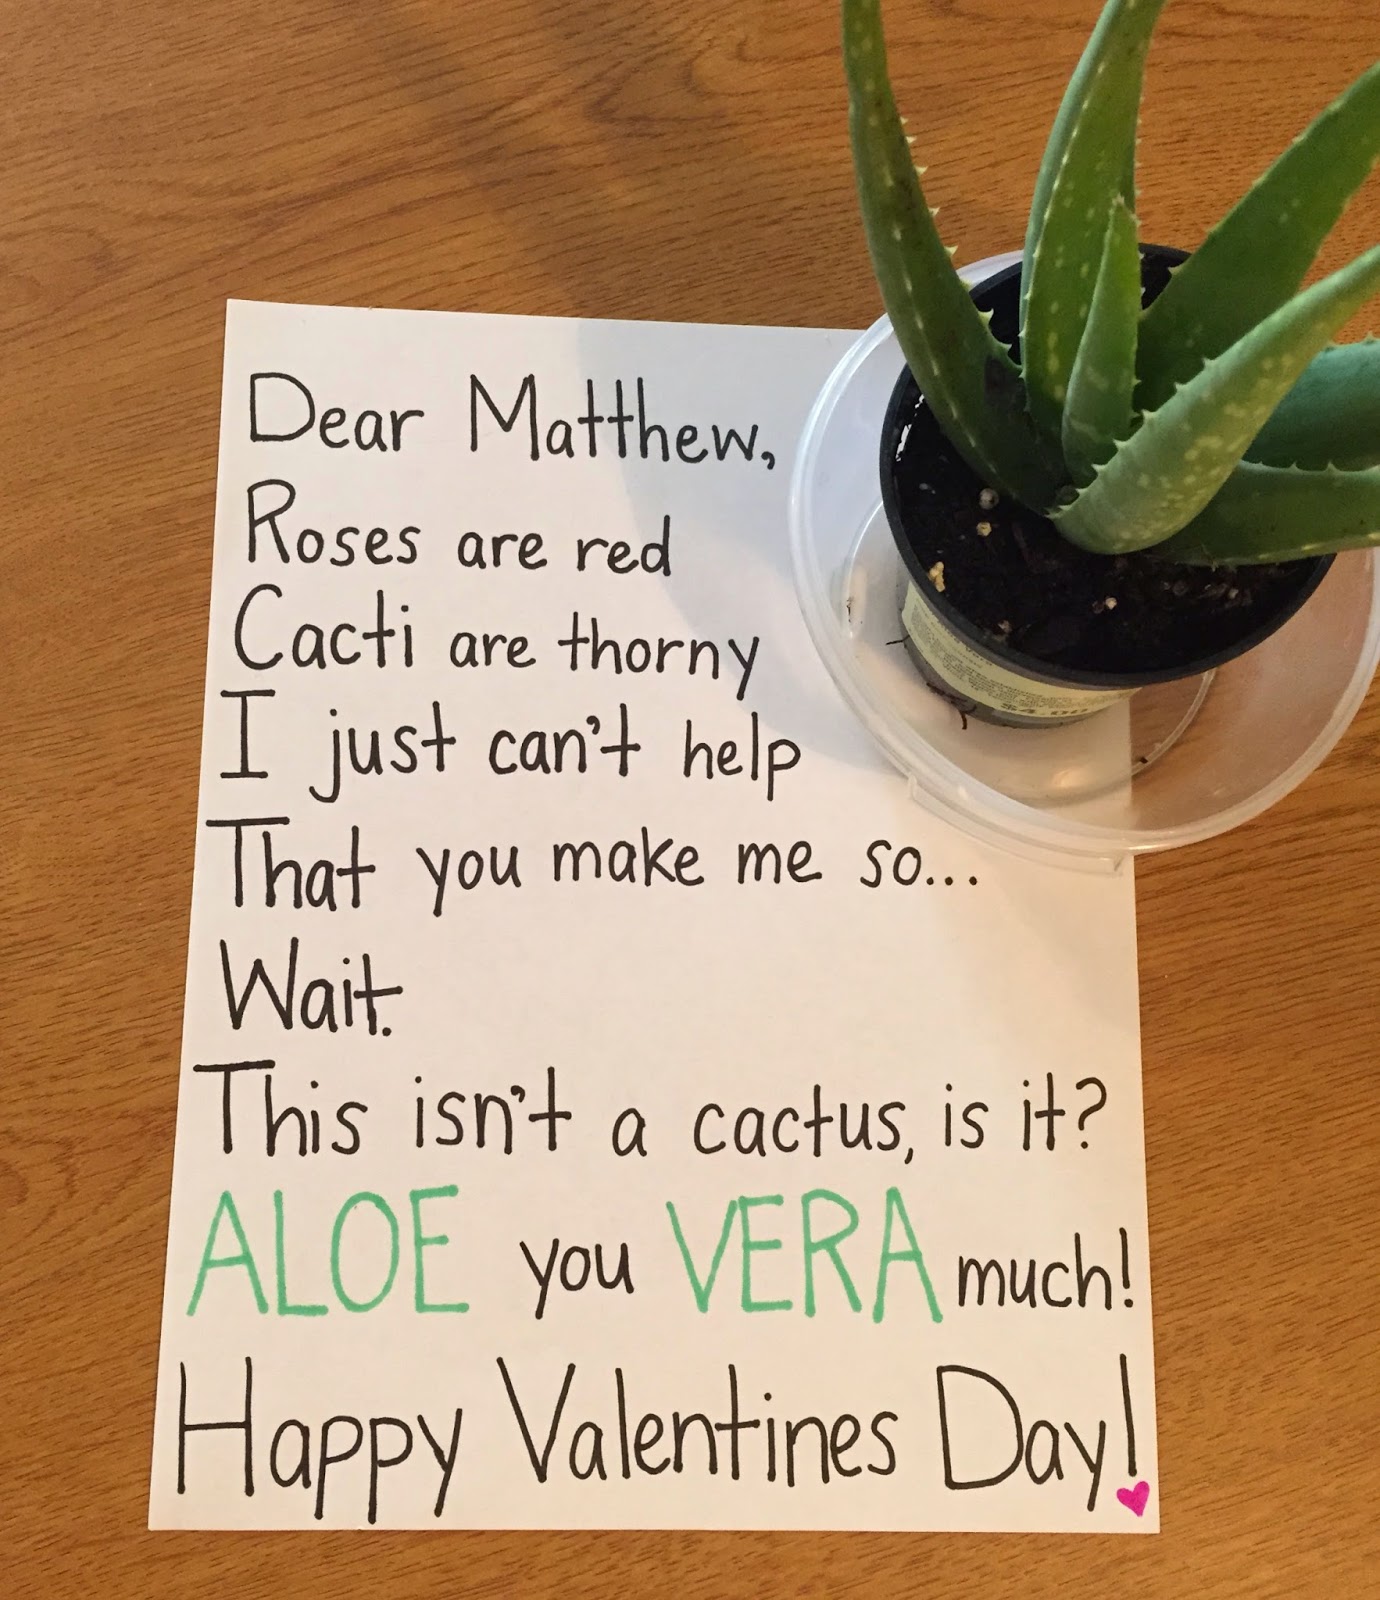 Dear Matthew,
Roses are red
Cacti are thorny
I just can't help
That you make me so...
Wait.
This isn't a cactus, is it?
ALOE you VERA much!
Happy Valentines Day!